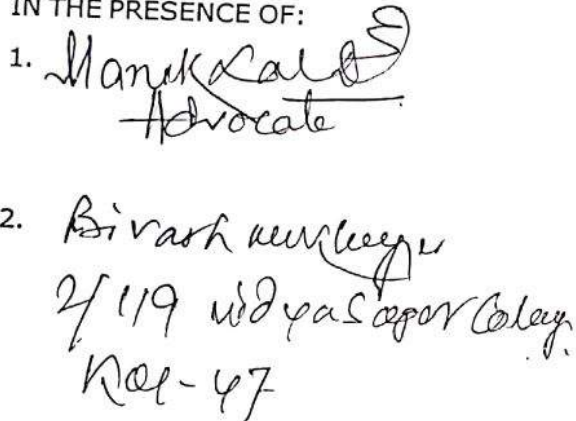 IN THE PRESENCE OF:
1. Manik Lal
Advocate
2. Bivash Mukherjee
2/119 Vidyasagar Colony.
Kol-47